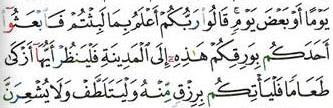 يَوۡمًا أَوۡ بَعۡضَ يَوۡمٖۚ قَالُواْ رَبُّكُمۡ أَعۡلَمُ بِمَا لَبِثۡتُمۡ فَٱبۡعَثُوٓاْ
أَحَدَكُم بِوَرِقِكُمۡ هَٰذِهِۦٓ إِلَى ٱلۡمَدِينَةِ فَلۡيَنظُرۡ أَيُّهَآ أَزۡكَىٰ
طَعَامٗا فَلۡيَأۡتِكُم بِرِزۡقٖ مِّنۡهُ وَلۡيَتَلَطَّفۡ وَلَا يُشۡعِرَنَّ